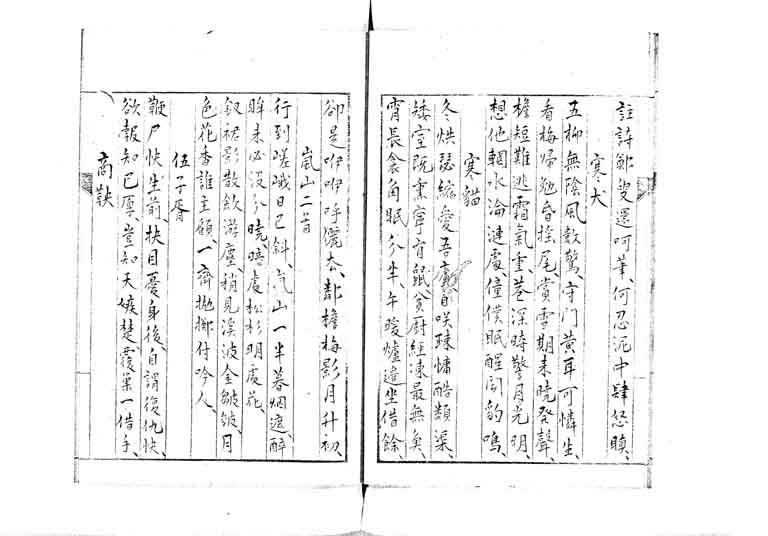 註詩鄭叟還呵筆、何忍泥中肆怒瞋、
寒犬
五柳無陰風數驚、守門黃耳可憐生、
看梅歸勉昏搖尾、賞雪期未曉發聲、
檐短難逃霜氣重、巷深時警月光明、
想他輞水淪漣處、僮僕眠醒聞豹鳴、
寒貓
冬烘瑟縮愛吾廬、自咲疎慵酷類渠、
矮室既熏寧有鼠、貧厨經凍最無魚、
宵長衾角眠分半、午暖爐邊坐借餘、
卻是咿咿呼儷去、鄰檐梅影月升初、
嵐山二首
行到嵯峨日已斜、嵐山一半暮烟遮、醉
眸未必沒分曉、暗處松杉明處花、
釵裙影散飲游塵、稍見溪波金皺皺、月
色花香誰主顧、一齊拋擲付吟人、
伍子胥
鞭尸快生前、抉目憂身後、自謂復仇快、
欲報知己厚、豈知天嫉楚、覆巢一借手、
商鞅